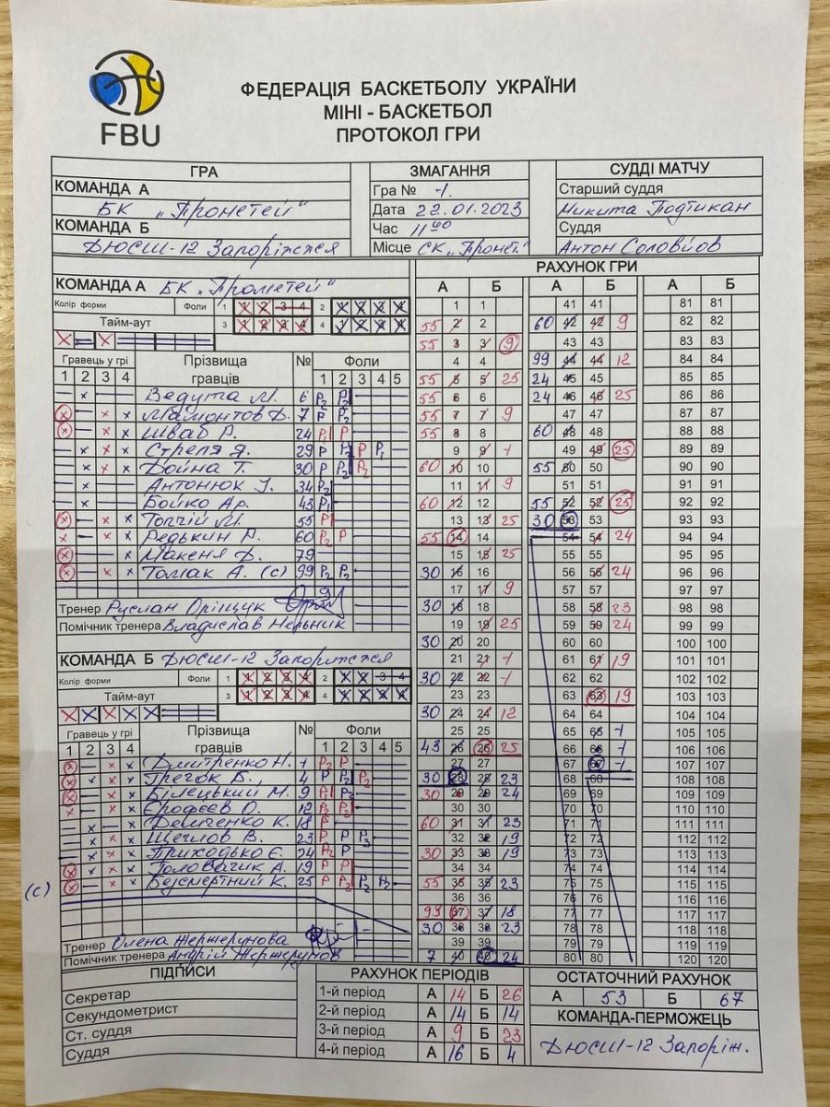 FBU
ФЕДЕРАЦІЯ БАСКЕТБОЛУ УКРАЇНИ
МІНІ - БАСКЕТБОЛ
ПРОТОКОЛ ГРИ
ГРА
КОМАНДА А
БК „Прометей"
КОМАНДА Б
ДЮСШ-12 Запоріжжя
ЗМАГАННЯ
Гра № -1.
Дата 22.01.2023
Час 11 00
Місце СК „Промет."
СУДДІ МАТЧУ
Старший суддя
Микита Подтикан
Суддя
Антон Соловйов
КОМАНДА А БК „Прометей"
Колір форми Фоли 1 1 2 3 4 2 1 2 3 4
Тайм-аут 3 1 2 3 4 4 1 2 3 4
Гравець у грі Прізвища гравців № Фоли
1 2 3 4 1 2 3 4 5
Ведута М. 6 P2 P2
Мамонтов Д. 7 P P2
Шваб Р. 24 P1 P
Стрепя Я. 29 P P2 P P1
Война Т. 30 P P2 P2
Антонюк І. 34 P2
Бойко Ар. 43 P1
Топчій М. 55 P
Редькин Р. 60 P2 P
Макеня Д. 79
Томак А. (с) 99 P2 P2
Тренер Руслан Оріщук
Помічник тренера Владислав Нельник
КОМАНДА Б ДЮСШ-12 Запоріжжя
Колір форми Фоли 1 1 2 3 4 2 1 2 3 4
Тайм-аут 3 1 2 3 4 4 1 2 3 4
Гравець у грі Прізвища гравців № Фоли
1 2 3 4 1 2 3 4 5
Дмитренко Н. 1 P2 P
Грегок Б. 4 P P2 P2
Білецький М. 9 P1 P2
Єрофєєв О. 12 P2 P2
Демченко К. 18 P
Щеглов В. 23 P P P2
Приходько Є. 24 P2 P
Головачик А. 19 P P
(с) Безсмертний К. 25 P P2 P2 P2
Тренер Олена Жержерунова
Помічник тренера Андрій Жержерунов
РАХУНОК ГРИ
А Б А Б А Б
1 1 41 41 81 81
55 2 2 60 42 42 9 82 82
55 3 3 9 43 43 83 83
4 4 99 44 44 12 84 84
55 5 5 25 24 45 45 85 85
55 6 6 24 46 46 25 86 86
55 7 7 9 47 47 87 87
55 8 8 60 48 48 88 88
9 9 1 49 49 25 89 89
60 10 10 55 50 50 90 90
11 11 9 51 51 91 91
60 12 12 55 52 52 25 92 92
13 13 25 30 53 53 93 93
55 14 14 54 54 24 94 94
15 15 25 55 55 95 95
30 16 16 56 56 24 96 96
17 17 9 57 57 97 97
30 18 18 58 58 23 98 98
19 19 25 59 59 24 99 99
30 20 20 60 60 100 100
21 21 1 61 61 19 101 101
30 22 22 1 62 62 102 102
23 23 63 63 19 103 103
30 24 24 12 64 64 104 104
25 25 65 65 1 105 105
43 26 26 25 66 66 1 106 106
27 27 67 67 1 107 107
30 28 28 23 68 68 108 108
30 29 29 24 69 69 109 109
30 30 70 70 110 110
60 31 31 23 71 71 111 111
32 32 19 72 72 112 112
30 33 33 19 73 73 113 113
34 34 74 74 114 114
55 35 35 23 75 75 115 115
36 36 76 76 116 116
99 37 37 18 77 77 117 117
30 38 38 23 78 78 118 118
39 39 79 79 119 119
7 40 40 24 80 80 120 120
ПІДПИСИ
Секретар
Секундометрист
Ст. суддя
Суддя
РАХУНОК ПЕРІОДІВ
1-й період А 14 Б 26
2-й період А 14 Б 14
3-й період А 9 Б 23
4-й період А 16 Б 4
ОСТАТОЧНИЙ РАХУНОК
А 53 Б 67
КОМАНДА-ПЕРМОЖЕЦЬ
ДЮСШ-12 Запоріж.